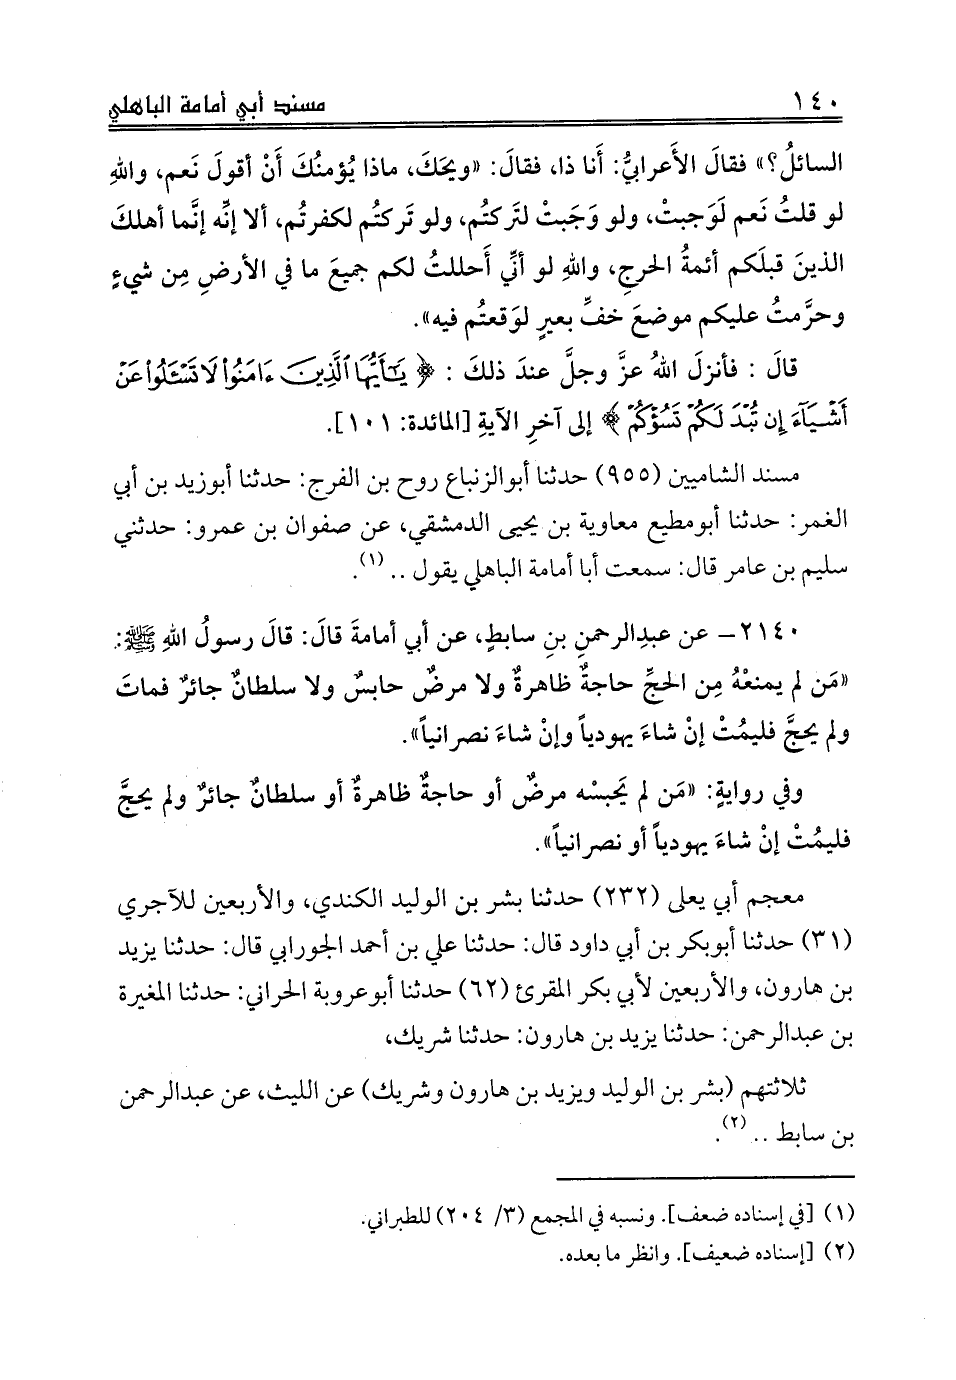 ١٤٠ مسند أبي أمامة الباهلي
السائلُ؟» فقالَ الأَعرابيُّ: أَنا ذا، فقالَ: «ويحَكَ، ماذا يُؤمنُكَ أَنْ أقولَ نَعم، واللهِ
لو قلتُ نَعم لَوَجبتْ، ولو وَجَبتْ لتَركتُم، ولو تركتُم لكفرتُم، ألا إنَّه إنَّما أهلكَ
الذينَ قبلَكم أئمةُ الحرجِ، واللهِ لو أنِّي أَحللتُ لكم جميعَ ما في الأرضِ مِن شيءٍ
وحرَّمتُ عليكم موضعَ خفِّ بعيرٍ لوَقعتُم فيه».
قالَ : فأنزلَ اللهُ عزَّ وجلَّ عندَ ذلكَ : ﴿ يَٰٓأَيُّهَا ٱلَّذِينَ ءَامَنُواْ لَا تَسْـَٔلُواْ عَنْ
أَشْيَآءَ إِن تُبْدَ لَكُمْ تَسُؤْكُمْ ﴾ إلى آخرِ الآيةِ [المائدة: ١٠١].
مسند الشاميين (٩٥٥) حدثنا أبوالزنباع روح بن الفرج: حدثنا أبوزيد بن أبي
الغمر: حدثنا أبومطيع معاوية بن يحيى الدمشقي، عن صفوان بن عمرو: حدثني
سليم بن عامر قال: سمعت أبا أمامة الباهلي يقول .. (١).
٢١٤٠ – عن عبدِالرحمنِ بنِ سابطٍ، عن أبي أمامةَ قالَ: قالَ رسولُ اللهِ ﷺ:
«مَن لم يمنعْهُ مِن الحجِّ حاجةٌ ظاهرةٌ ولا مرضٌ حابسٌ ولا سلطانٌ جائرٌ فماتَ
ولم يحجَّ فليمُتْ إنْ شاءَ يهودياً وإنْ شاءَ نصرانياً».
وفي روايةٍ: «مَن لم يَحبسْه مرضٌ أو حاجةٌ ظاهرةٌ أو سلطانٌ جائرٌ ولم يحجَّ
فليمُتْ إنْ شاءَ يهودياً أو نصرانياً».
معجم أبي يعلى (٢٣٢) حدثنا بشر بن الوليد الكندي، والأربعين للآجري
(٣١) حدثنا أبوبكر بن أبي داود قال: حدثنا علي بن أحمد الجورابي قال: حدثنا يزيد
بن هارون، والأربعين لأبي بكر المقرئ (٦٢) حدثنا أبوعروبة الحراني: حدثنا المغيرة
بن عبدالرحمن: حدثنا يزيد بن هارون: حدثنا شريك،
ثلاثتهم (بشر بن الوليد ويزيد بن هارون وشريك) عن الليث، عن عبدالرحمن
بن سابط .. (٢).
(١) [في إسناده ضعف]. ونسبه في المجمع (٣/ ٢٠٤) للطبراني.
(٢) [إسناده ضعيف]. وانظر ما بعده.